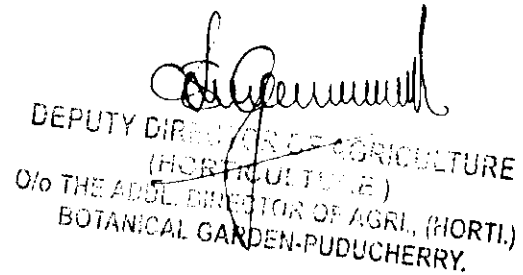 DEPUTY DIRECTOR OF AGRICULTURE
(HORTICULTURE)
O/o THE ADDL. DIRECTOR OF AGRI., (HORTI.)
BOTANICAL GARDEN-PUDUCHERRY.